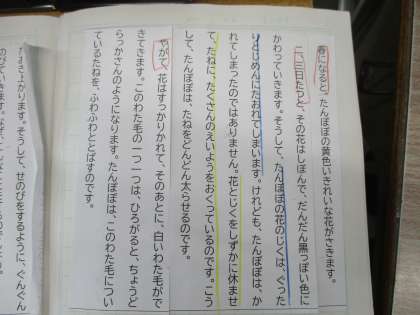 春になると、たんぽぽの黄色いきれいな花がさきます。
二、三日たつと、その花はしぼんで、だんだん黒っぽい色に
かわっていきます。そうして、たんぽぽの花のじくは、ぐった
りとじめんにたおれてしまいます。けれども、たんぽぽは、か
れてしまったのではありません。花とじくをしずかに休ませ
て、たねに、たくさんのえいようをおくっているのです。こう
して、たんぽぽは、たねをどんどん太らせるのです。
やがて、花はすっかりかれて、そのあとに、白いわた毛がで
きてきます。このわた毛の一つ一つは、ひろがると、ちょうど
らっかさんのようになります。たんぽぽは、このわた毛につい
ているたねを、ふわふわととばすのです。
上がります。そうして、せのびをするように、ぐんぐん